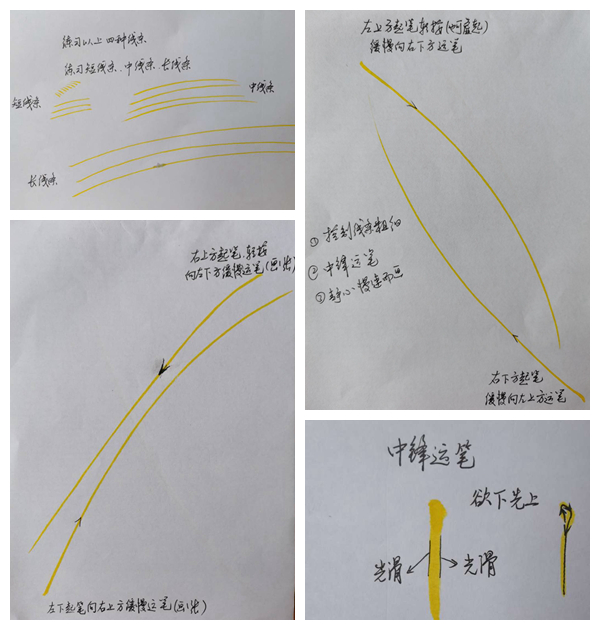 练习以上四种线条
练习短线条、中线条、长线条
短线条
中线条
长线条
左上方起笔轻按
缓慢向右下方运笔
① 控制线条粗细
② 中锋运笔
③ 静心慢速而画
右下方起笔
缓慢向左上方运笔
右上方起笔、轻按
向左下方缓慢运笔(画出)
左下起笔向右上方缓慢运笔(画出)
中锋运笔
欲下先上
光滑
光滑